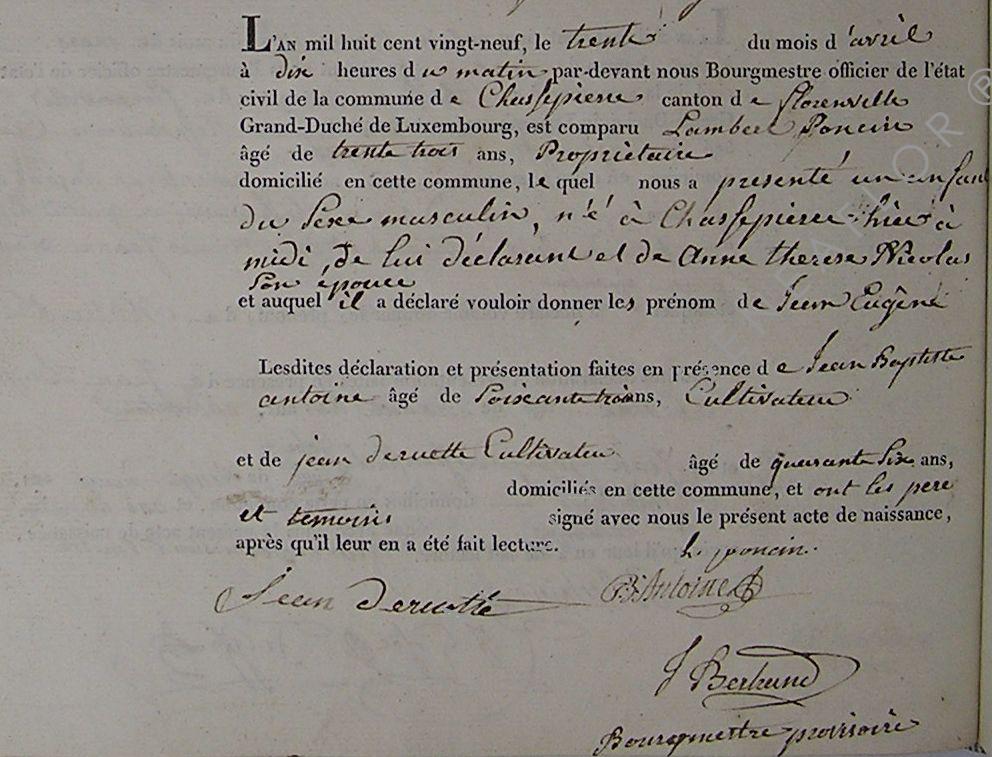 L'AN mil huit cent vingt-neuf, le trente du mois d'avril
à dix heures du matin par-devant nous Bourgmestre officier de l'état
civil de la commune de Chassepierre canton de florenville
Grand-Duché de Luxembourg, est comparu Lambert Poncin
âgé de trente trois ans, Propriètaire
domicilié en cette commune, lequel nous a presenté un enfant
du Sexe masculin, né à Chassepierre hier à
midi, de lui déclarant et de Anne therese Nicolas
Son épouse
et auquel il a déclaré vouloir donner les prénom de Jean Eugêne
Lesdites déclaration et présentation faites en présence de Jean Baptiste
antoine âgé de Soixante trois ans, Cultivateur
et de jean deruette Cultivateur âgé de quarante Six ans,
domiciliés en cette commune, et ont les pere
et temoins signé avec nous le présent acte de naissance,
après qu'il leur en a été fait lecture.
L. poncin.
Jean Deruette B. Antoine
J Bertrand
Bourgmestre provisoire